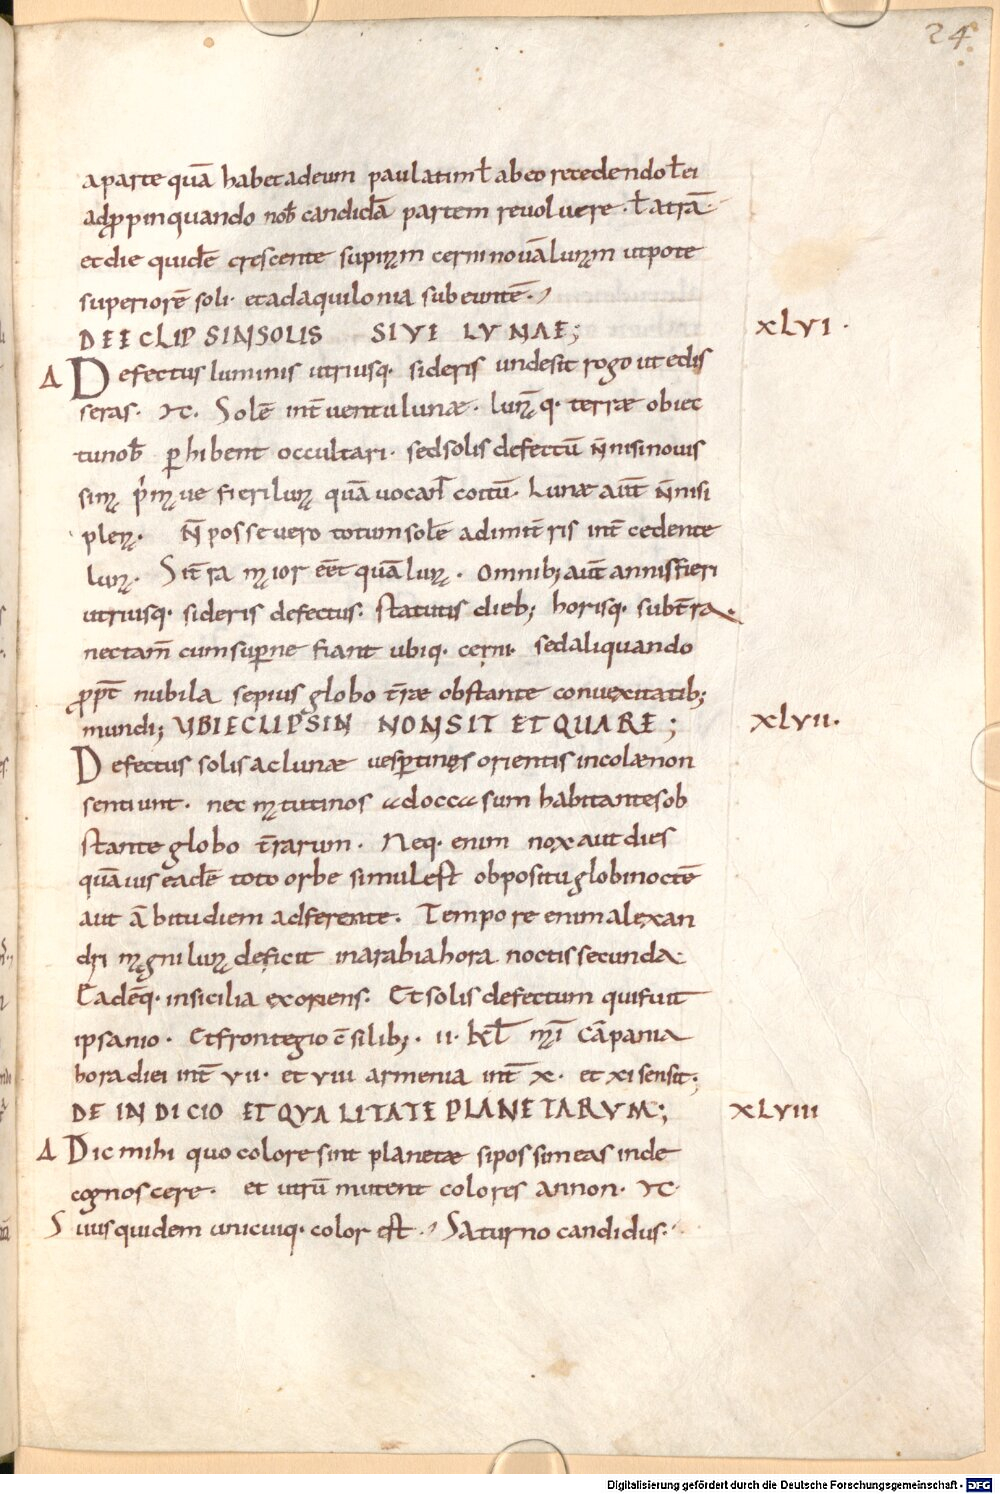 24
aparte quā habet adeum paulatim ł abeo recedendo ł ei
adꝓpinquando nob̄ candidā partem reuoluere · ł atrā·
et die quidē crescente supinum cerni nouā lunam utpote
superiorē soli · et ad aquilonia subeuntē·
DE ECLIPSIN SOLIS SIVE LVNAE; XLVI·
Δ Defectus luminis utriusq· sideris unde sit rogo ut edis
seras· Solē int̄uentu lunæ· lunāq· terræ obiec
tu nob̄ ꝑhibent occultari· sed solis defectū n̄ nisi nouis
fieri quā uocant̄ coitū· Lunæ aūt n̄ nisi
N̄ posse uero totum solē adimi t̄ris int̄cedente
Si t̄ra maior eēt quā luna· Omnib; aūt annis fieri
utriusq· sideris defectus· statutis dieb; horisq· sub t̄ra·
nec tam̄ cum suꝑne fiant ubiq· cerni· sed aliquando
ꝓpt̄ nubila sepius globo t̄ræ obstante conuexitatib;
mundi; UBI ECLIPSIN NON SIT ET QUARE; XLVII·
Defectus solis ac lunæ uesꝑtinos orientis incolæ non
sentiunt· nec matutinos ad occasum habitantes ob
stante globo t̄rarum· Neq· enim nox aut dies
quāuis eadē toto orbe simul est obpositu globi noctē
aut ābitu diem adferente· Tempore enim alexan
dri magni luna deficit in arabia hora noctis secunda·
Eadēq· in sicilia exoriens· Et solis defectum qui fuit
ipsanio· Et frontegio c̄silib;· II· kł mai cāpania
hora diei int̄ VII· et VIII armenia int̄ X· et XI sensit;
DE INDICIO ET QVALITATE PLANETARVM; XLVIII
Δ Dic mihi quo colore sint planetæ si possim eas inde
cognoscere· et utrū mutent colores annon·
Suus quidem unicuiq· color est· Saturno candidus·
Digitalisierung gefördert durch die Deutsche Forschungsgemeinschaft - DFG